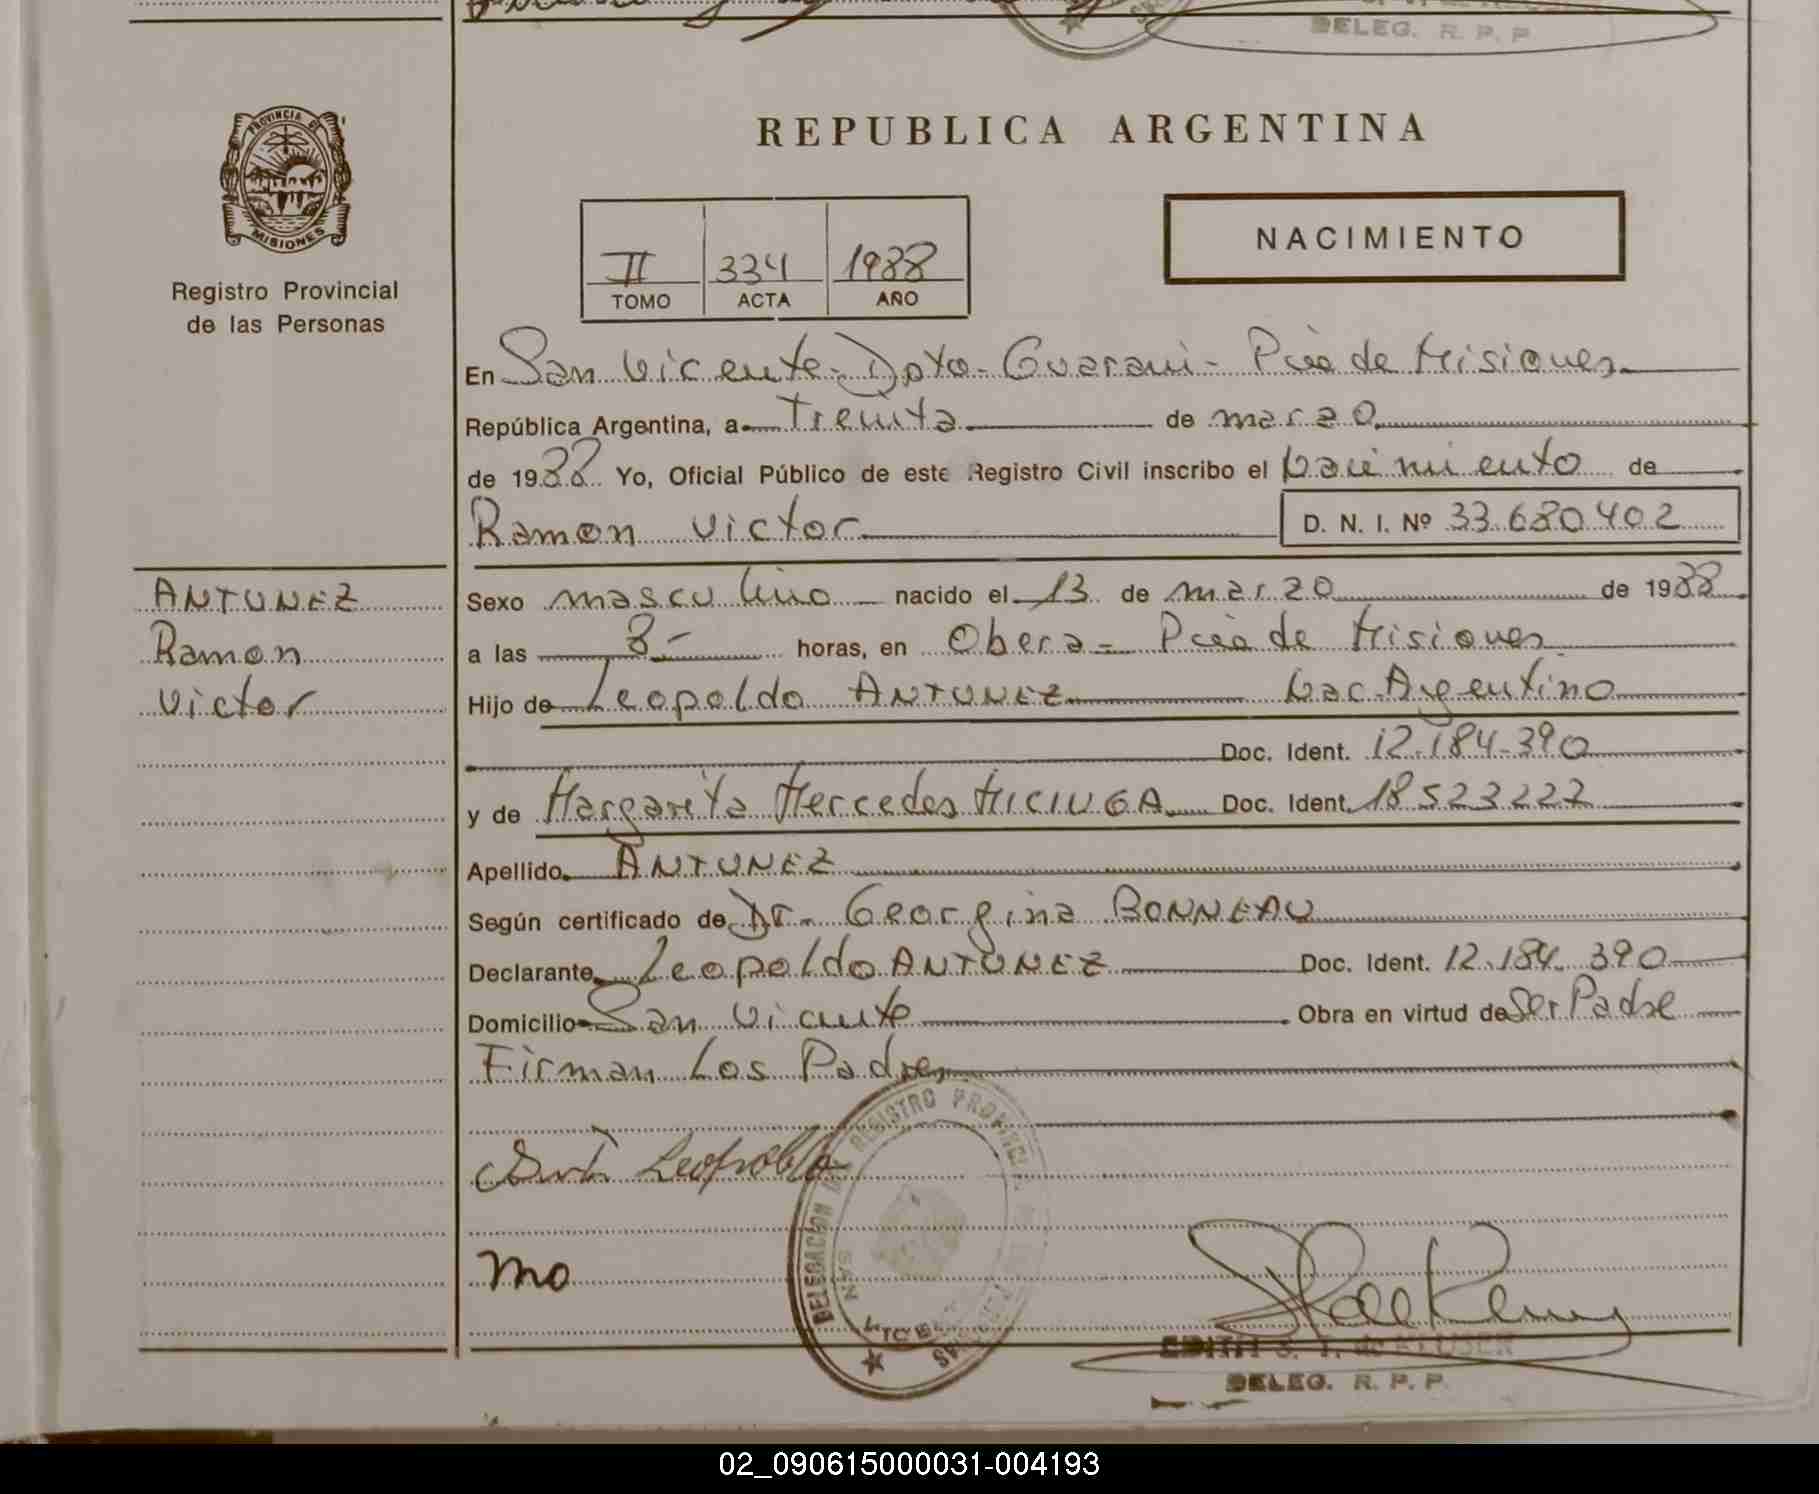 DELEG. R. P. P
PROVINCIA DE
MISIONES
Registro Provincial
de las Personas
REPUBLICA ARGENTINA
NACIMIENTO
II 334 1988
TOMO ACTA AÑO
En San Vicente - Dpto - Guarani - Pcia de Misiones
República Argentina, a Treinta de marzo
de 1988 Yo, Oficial Público de este Registro Civil inscribo el Nacimiento de
Ramon Victor D. N. I. Nº 33.680.402
ANTUNEZ
Ramon
Victor
Sexo masculino nacido el 13 de marzo de 1988
a las 8- horas, en Obera - Pcia de Misiones
Hijo de Leopoldo ANTUNEZ Nac. Argentino
Doc. Ident. 12.184.390
y de Margarita Mercedes Doc. Ident. 18.523.227
Apellido ANTUNEZ
Según certificado de Dr. Georgina BONNEAU
Declarante Leopoldo ANTUNEZ Doc. Ident. 12.184.390
Domicilio San Vicente Obra en virtud de Ser Padre
Firman Los Padres
Leopoldo
DELEGACION DEL REGISTRO PROVINCIAL DE LAS PERSONAS
SAN VICENTE
mo
EDITH S. T. de KLUSER
DELEG. R. P. P.
02_090615000031-004193